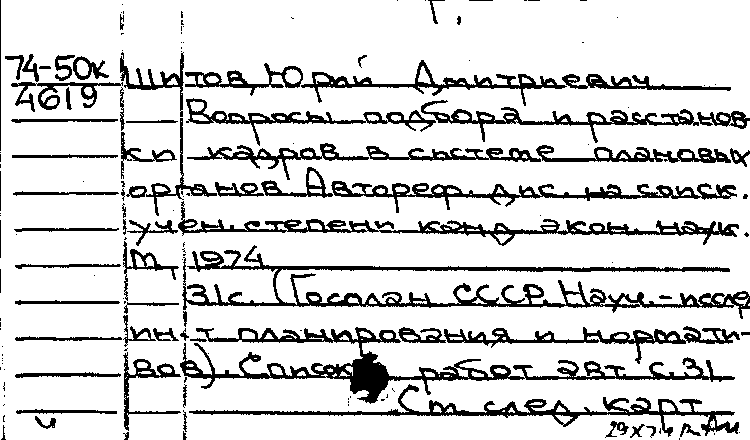 74-50к
4619
Шитов, Юрий Дмитриевич
Вопросы подбора и расстанов
ки кадров в системе плановых
органов. Автореф. дис. на соиск.
учен. степени канд. экон. наук.
М, 1974
31с. (Госплан СССР. Науч.-иссле
ин-т планирования и нормати-
вов). Список работ авт. с. 31
См. след. карт